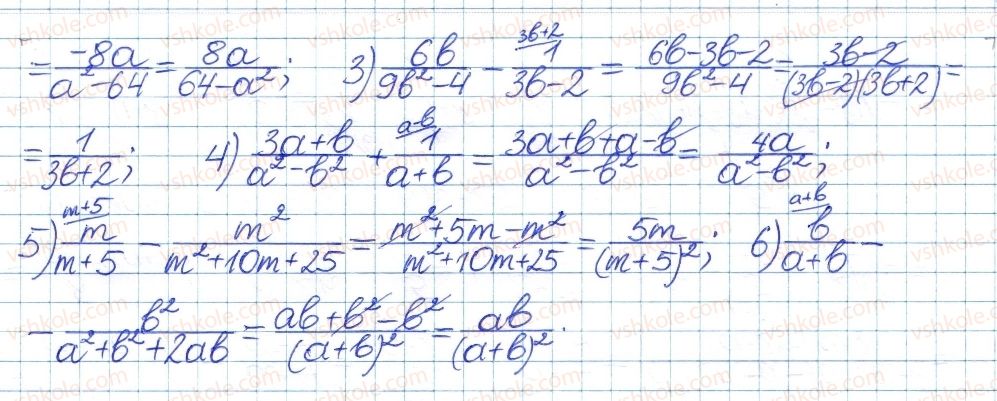 = -8a / a² - 64 = 8a / 64 - a²; 3) 6b / 9b² - 4 - 1 (3b+2) / 3b - 2 = 6b - 3b - 2 / 9b² - 4 = 3b - 2 / (3b - 2)(3b + 2) =
= 1 / 3b + 2; 4) 3a + b / a² - b² + 1 (a-b) / a + b = 3a + b + a - b / a² - b² = 4a / a² - b²;
5) m (m+5) / m + 5 - m² / m² + 10m + 25 = m² + 5m - m² / m² + 10m + 25 = 5m / (m + 5)²; 6) b (a+b) / a + b -
- b² / a² + b² + 2ab = ab + b² - b² / (a + b)² = ab / (a + b)².